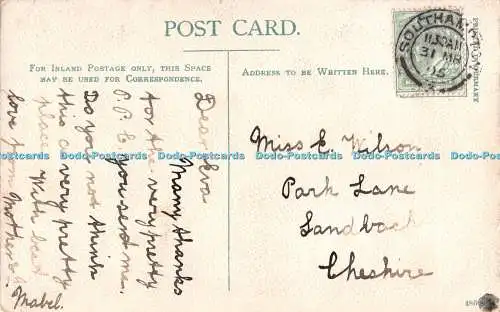 POST CARD.
FOR INLAND POSTAGE ONLY, THIS SPACE
MAY BE USED FOR CORRESPONDENCE.
ADDRESS TO BE WRITTEN HERE.
SOUTHAM
11.30AM
31 MR
05
Dear Eva
Many thanks
for the very pretty
P.P.C. you sent me.
Do you not think
this a very pretty
place. With best
love from Mother &
Mabel.
Miss E. Wilson
Park Lane
Sandbach
Cheshire
Dodo-Postcards Dodo-Postcards Dodo-Postcards Dodo-Postcards Dodo-Postcards